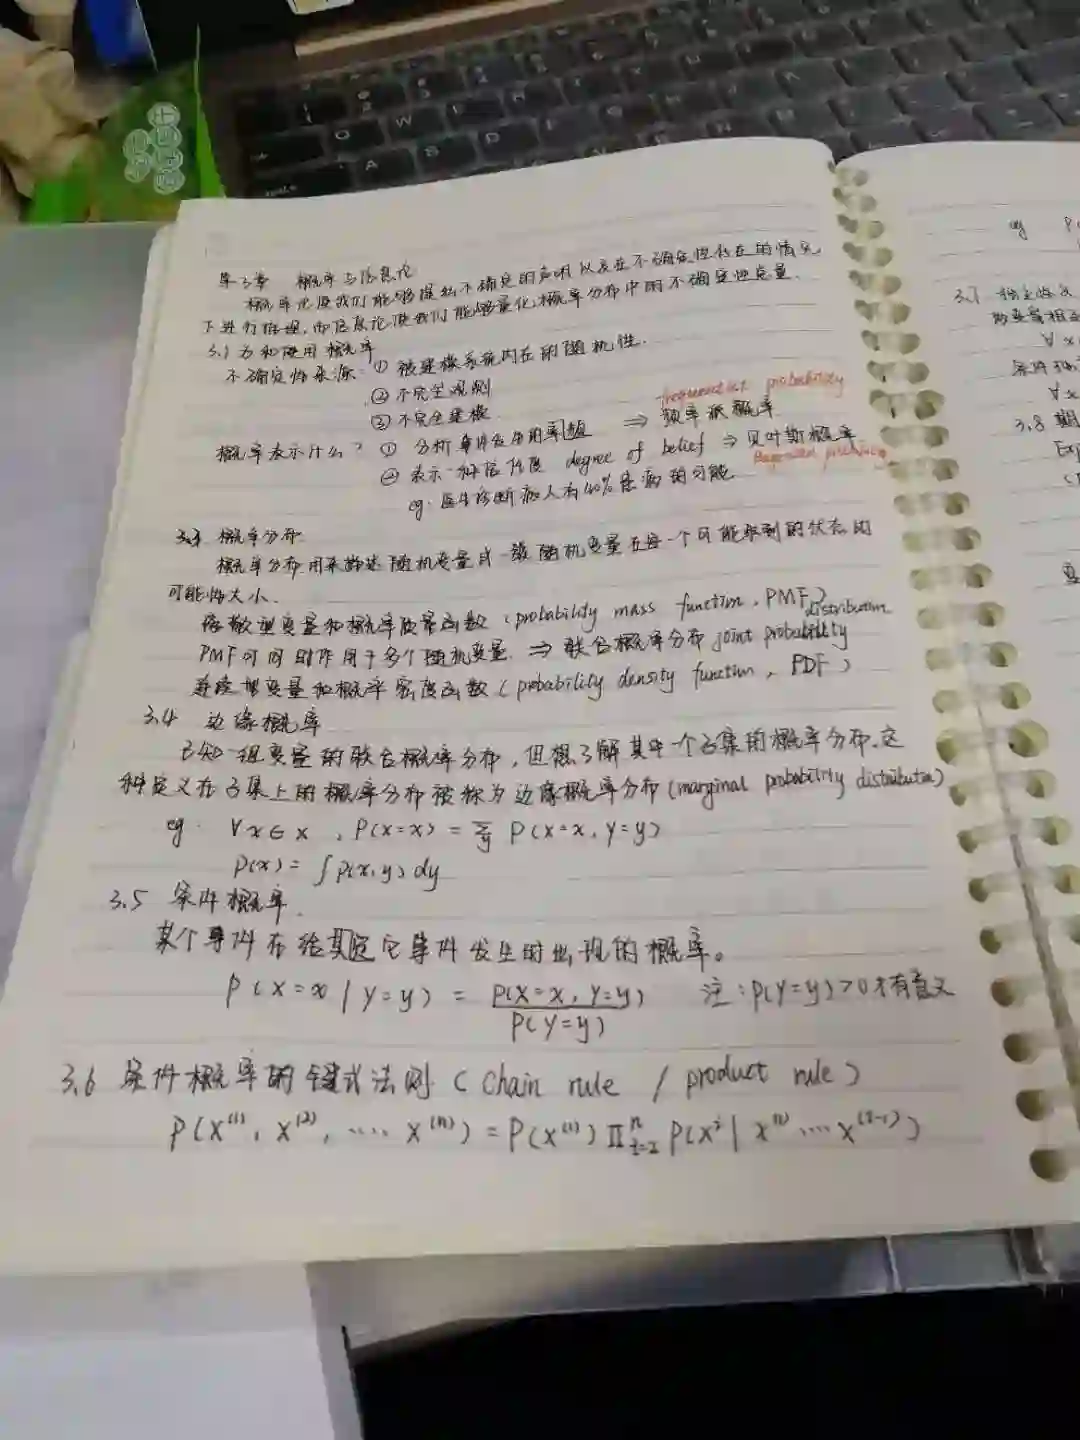 第3章 概率与信息论
概率论使我们能够提出不确定的声明以及在不确定性存在的情况
下进行推理,而信息论使我们能够量化概率分布中的不确定性总量.
3.1 为何使用概率
不确定性来源: ① 被建模系统内在的随机性.
② 不完全观测
③ 不完全建模
frequentist probability
概率表示什么? ① 分析事件发生的率值 ⇒ 频率派概率
② 表示一种信任度 degree of belief ⇒ 贝叶斯概率
Bayesian probability
eg. 医生诊断病人有40%患病的可能
3.3 概率分布
概率分布用来描述随机变量或一簇随机变量在每一个可能取到的状态的
可能性大小.
离散型变量和概率质量函数(probability mass function, PMF)
distribution
PMF可同时作用于多个随机变量. ⇒ 联合概率分布 joint probability
连续型变量和概率密度函数(probability density function, PDF)
3.4 边缘概率
已知一组变量的联合概率分布,但想了解其中一个子集的概率分布.这
种定义在子集上的概率分布被称为边缘概率分布(marginal probability distribution)
eg. ∀x∈x , P(x=x) = Σy P(x=x, y=y)
p(x) = ∫p(x,y) dy
3.5 条件概率.
某个事件在给定其它事件发生时出现的概率。
P(x=x | y=y) = P(x=x, y=y) / P(y=y) 注:P(y=y)>0才有意义
3.6 条件概率的链式法则 (chain rule / product rule)
P(x⁽¹⁾, x⁽²⁾, ..... x⁽ⁿ⁾) = P(x⁽¹⁾) Πⁿᵢ₌₂ P(xⁱ | x⁽¹⁾ .... x⁽ⁱ⁻¹⁾)
eg
3.7
3.8 期